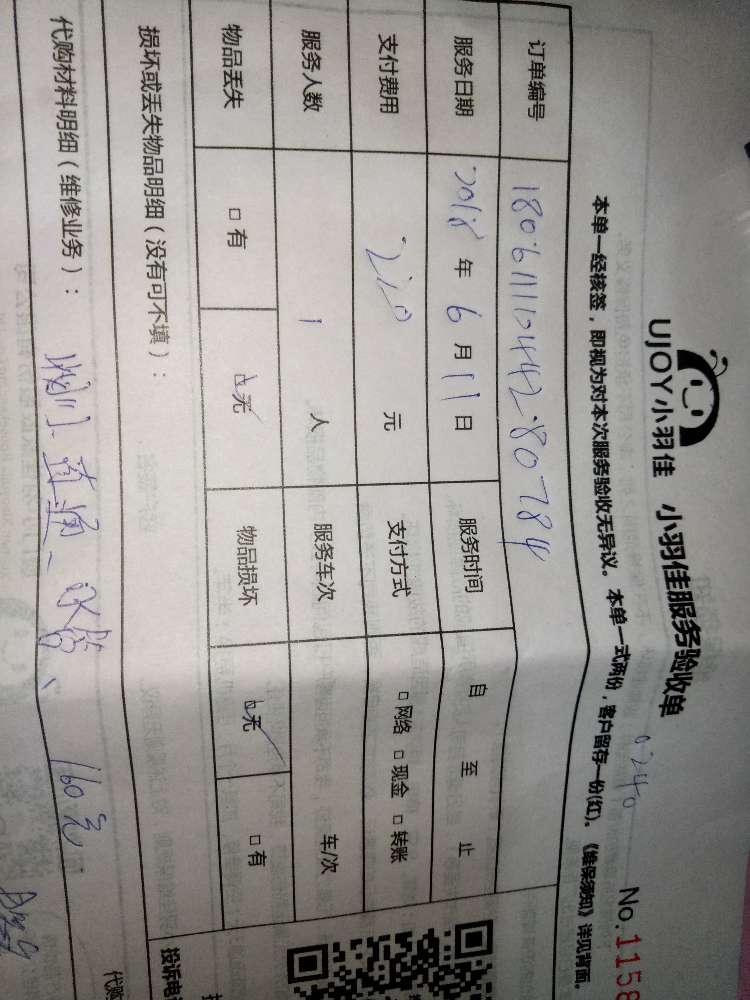 UJOY小羽佳 小羽佳服务验收单
No.1158
本单一经核签，即视为对本次服务验收无异议。本单一式两份，客户留存一份(红)。《维保须知》详见背面。
订单编号
服务日期 2018 年 6 月 11 日 服务时间 自 至 止
支付费用 210 元 支付方式 □网络 □现金 □转账
服务人数 1 人 服务车次 车/次
物品丢失 □有 ☑无 物品损坏 ☑无 □有
损坏或丢失物品明细（没有可不填）：
投诉电
代购材料明细（维修业务）： 直通、水管、 160元
代购